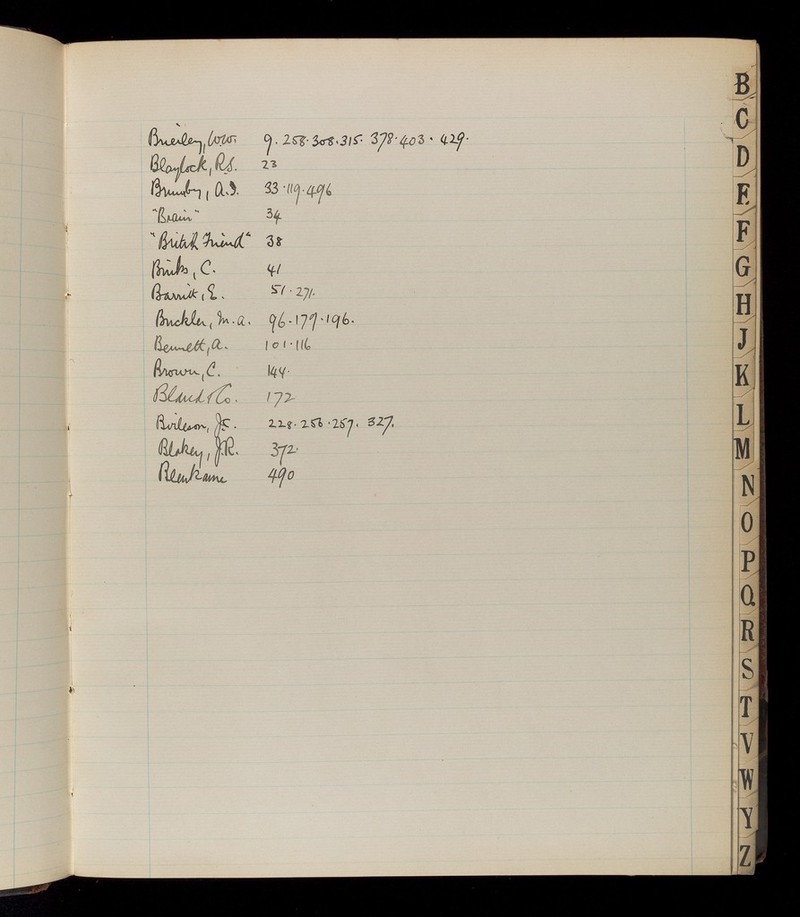 Brierley, W.W. 9. 258. 308. 315. 378. 403. 429.
Blaylock, R.S. 23
Brumby, A.I. 33. 119. 496
"Brain" 34
"British Friend" 38
Binks, C. 41
Barritt, E. 51. 271.
Buckler, M.A. 96. 179. 196.
Bennett, A. 101. 116
Brown, C. 144.
Bland & Co. 172
J.C. 228. 256. 257. 327.
Blakey, J.R. 372.
490
B
C
D
E
F
G
H
J
K
L
M
N
O
P
Q
R
S
T
V
W
Y
Z